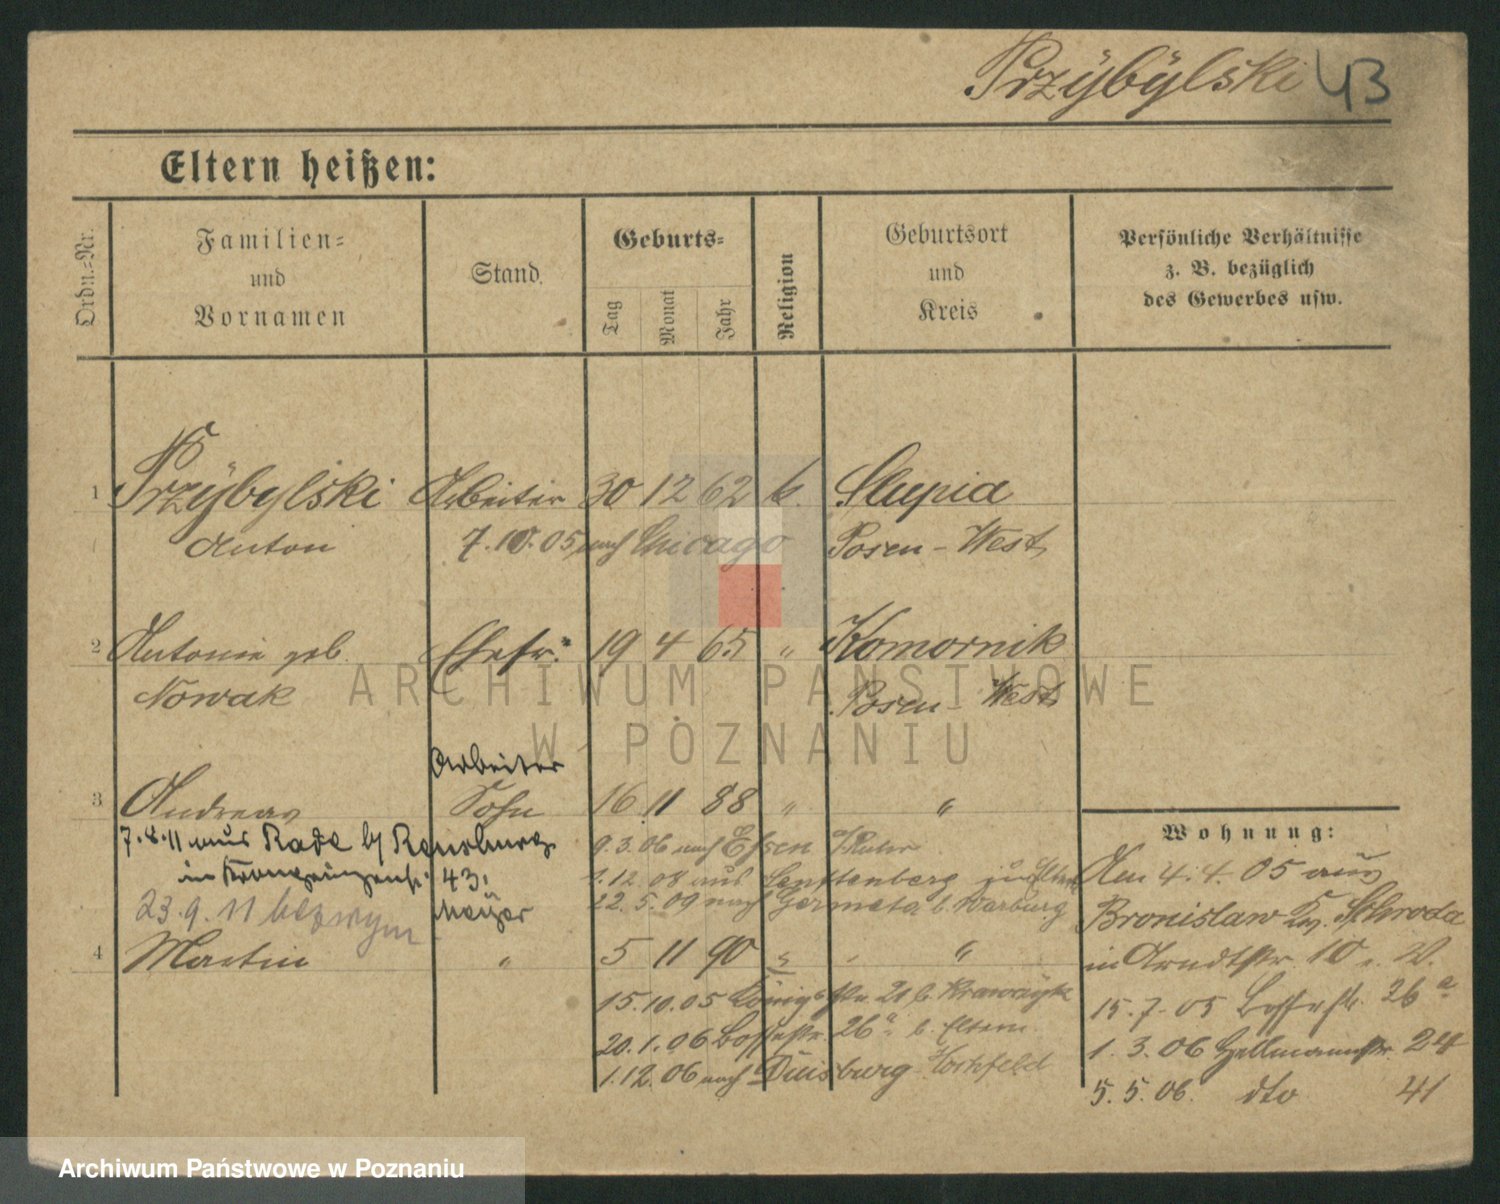 Przÿbÿlski 43
Eltern heißen:
Ordn.-Nr.
Familien-
und
Vornamen
Stand
Geburts-
Tag
Monat
Jahr
Religion
Geburtsort
und
Kreis
Persönliche Verhältnisse
z. B. bezüglich
des Gewerbes usw.
1 Przÿbylski Arbeiter 30 12 62 k. Slupia
Anton 7.10.05 nach Chicago Posen-West
2 Antonie geb. Ehefr. 19 4 65 " Komornik
Nowak Posen-West
Arbeiter
3 Andreas Sohn 16 11 88 " "
7.8.11 aus Rade b/ Rensburg 9.3.06 nach Essen /Ruhr
in 43, 1.12.08 aus Senftenberg zu Eltern
23.9.11 Meÿer 22.5.09 nach Germeta b. Warburg
4 Martin " 5 11 90 " "
15.10.05 Königstr. 21 b. Krawczÿk
20.1.06 Bosestr. 26a b. Eltern
1.12.06 nach Duisburg Hochfeld
Wohnung:
Den 4.4.05 aus
Bronislaw Kr. Schroda
in Arndtstr. 10
15.7.05 Bosestr. 26a
1.3.06 Hellmannstr. 24
5.5.06. dto 41
ARCHIWUM PAŃSTWOWE
W POZNANIU
Archiwum Państwowe w Poznaniu